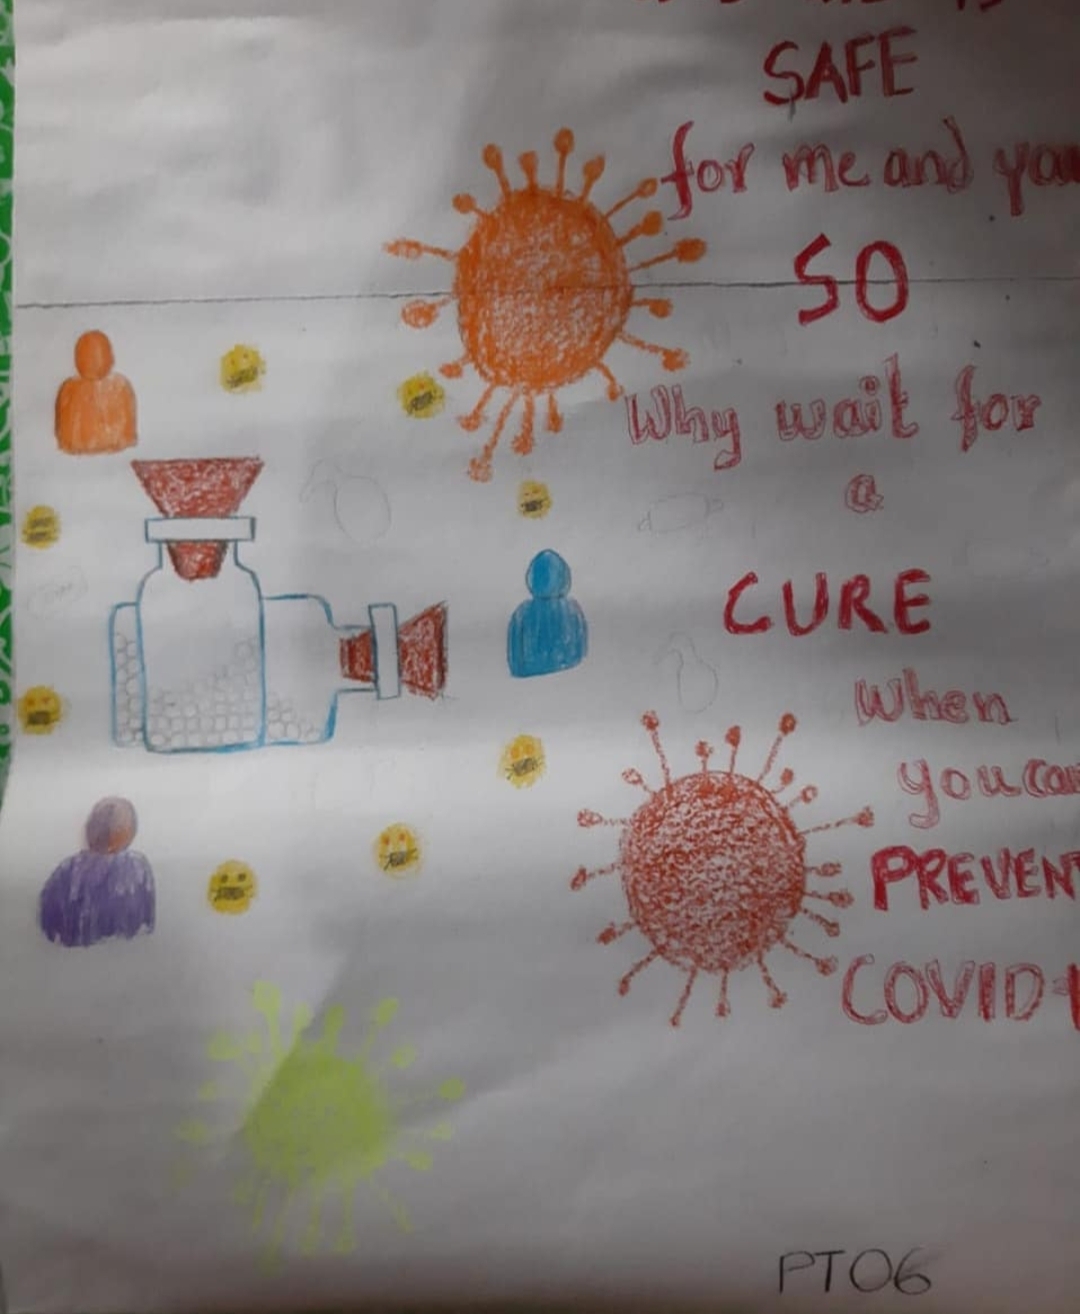 SAFE
for me and you
SO
Why wait for
a
CURE
When
you can
PREVENT
COVID-1
PTO6